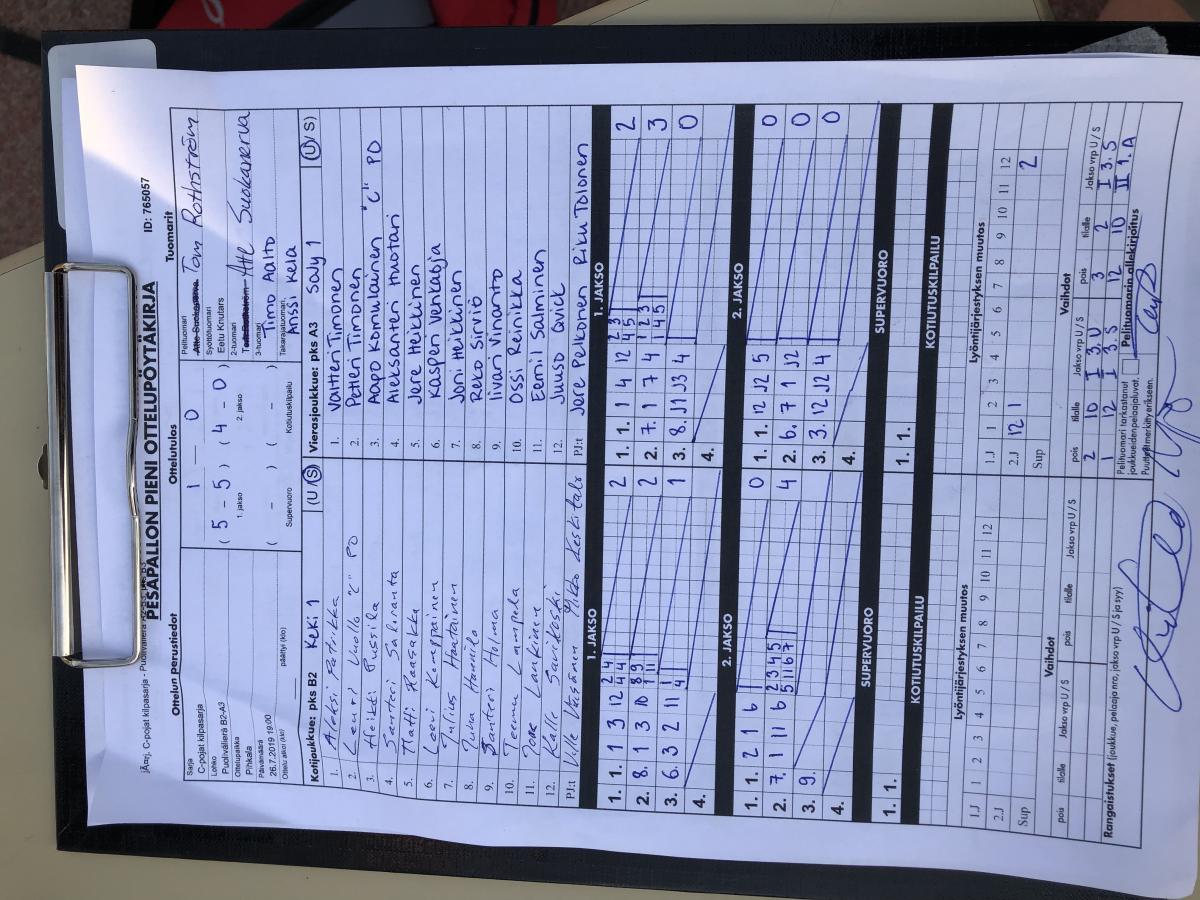 PESÄPALLON PIENI OTTELUPÖYTÄKIRJA
ID: 765057
Ottelun perustiedot
Ottelutulos
Tuomarit
Sarja
C-pojat kilpasarja
Lohko
Puolivälierä B2-A3
Ottelupaikka
Pihkala
Päivämäärä
26.7.2019 19:00
Ottelu alkoi (klo)
päättyi (klo)
1 - 0
( 5 - 5 ) ( 4 - 0 )
1. jakso 2. jakso
( - ) ( - )
Supervuoro Kotiutuskilpailu
Pelituomari
Tom Rothström
Syöttötuomari
Eetu Knutars
2-tuomari
Atte Suokanerva
3-tuomari
Timo Aalto
Takarajatuomari
Anssi Kela
Kotijoukkue: pks B2 KeKi 1 (U / S)
1. Aleksi Patrikka
2. Lauri Vuolle "C" PO
3. Heikki Pussila
4. Santtu Sakiranta
5. Matti Raasakka
6. Leevi Kemppainen
7. Julius Haatainen
8. Juha Hannila
9. Santeri Holma
10. Teemu Lampela
11. Tone Lankinen
12. Kalle Savikoski
PJ:t Ville Väsänen Mikko Keskitalo
Vierasjoukkue: pks A3 SaJy 1 (U / S)
1. Valtteri Timonen
2. Petteri Timonen
3. Aapo Komulainen "C" PO
4. Aleksanteri Huotari
5. Jore Heikkinen
6. Kasperi Venkaoja
7. Joni Heikkinen
8. Reko Sirviö
9. Iivari Vinaranto
10. Ossi Reinikka
11. Eemil Salminen
12. Juuso Qvick
PJ:t Jore Pelkonen Riku Tolonen
1. JAKSO
1. 1. 1 3 12 2 4 4 4 2
2. 8. 1 3 10 8 9 11 11 2
3. 6. 3 2 11 1 4 1
4.
2. JAKSO
1. 1. 2 1 6 0
2. 7. 1 11 6 2 3 4 5 5 11 6 7 4
3. 9.
4.
SUPERVUORO
1. 1.
KOTIUTUSKILPAILU
1. JAKSO
1. 1. 1 4 12 2 3 4 5 2
2. 7. 1 7 4 1 2 3 1 4 5 3
3. 8. J1 J3 4 0
4.
2. JAKSO
1. 1. 12 J2 5 0
2. 6. 7 1 J2 0
3. 3. 12 J2 4 0
4.
SUPERVUORO
1. 1.
KOTIUTUSKILPAILU
Lyöntijärjestyksen muutos
1.J 1 2 3 4 5 6 7 8 9 10 11 12
2.J
Sup
Vaihdot
pois tilalle Jakso vrp U / S pois tilalle Jakso vrp U / S
Rangaistukset (joukkue, pelaaja nro, jakso vrp U / S ja syy)
Lyöntijärjestyksen muutos
1.J 1 2 3 4 5 6 7 8 9 10 11 12
2.J 12 1 2
Sup
Vaihdot
pois tilalle Jakso vrp U / S pois tilalle Jakso vrp U / S
2 10 I 3. U 3 2 I 3. S
1 12 I 3. S 12 10 II 1. A
Pelituomari tarkastanut
joukkueiden pelaajaluvat.
Puutteet merkitty erikseen.
Pelituomarin allekirjoitus